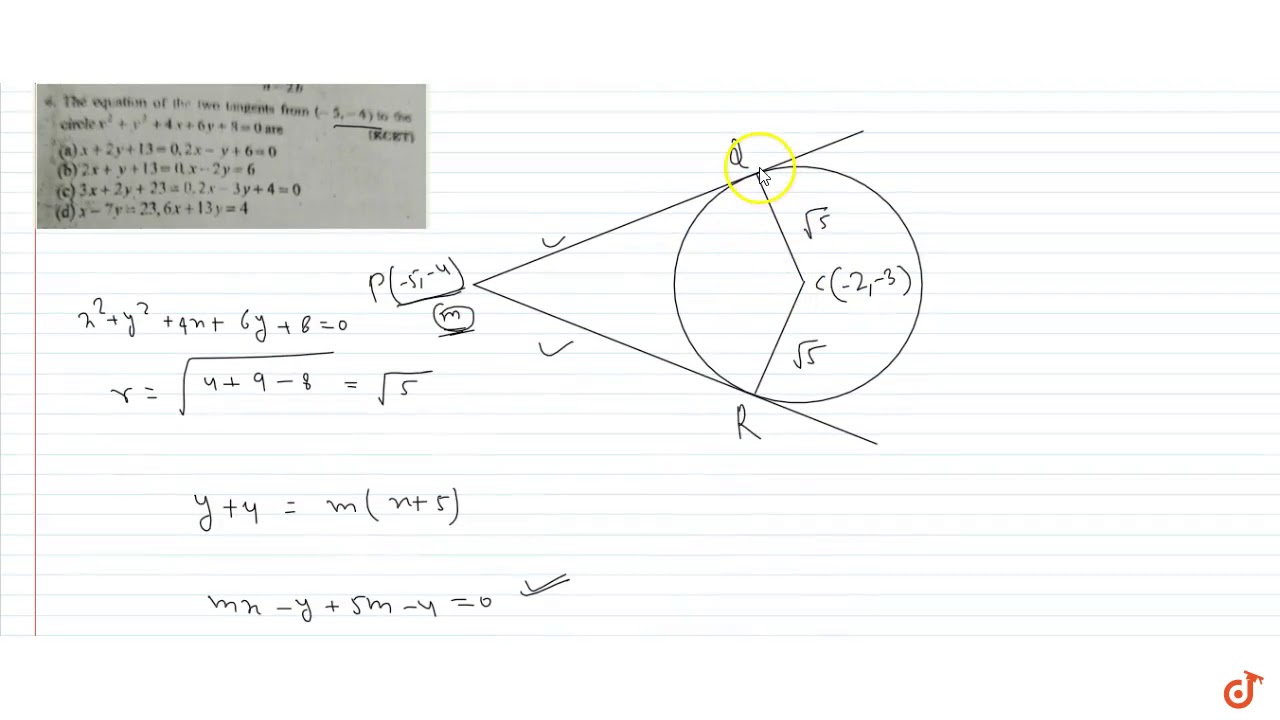 a = 2b
4. The equation of the two tangents from (-5, -4) to the
circle x² + y² + 4x + 6y + 8 = 0 are
(KCET)
(a) x + 2y + 13 = 0, 2x - y + 6 = 0
(b) 2x + y + 13 = 0, x - 2y = 6
(c) 3x + 2y + 23 = 0, 2x - 3y + 4 = 0
(d) x - 7y = 23, 6x + 13y = 4
Q
√5
P(-5,-4)
C(-2,-3)
m
x²+y²+4x+6y+8=0
√5
r = √4+9-8 = √5
R
y+4 = m(x+5)
mx-y+5m-4=0